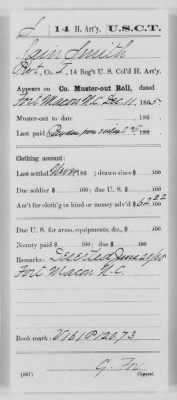 S 14 H. Art'y. U.S.C.T.
Cain Smith
Pvt, Co. I, 14 Reg't U. S. Col'd H. Art'y.
Appears on Co. Muster-out Roll, dated
Fort Macon N.C. Dec 11, 1865.
Muster-out to date 186 .
Last paid 186 .
Clothing account:
Last settled 186 ; drawn since $ 100
Due soldier $ 100; due U. S. $ 100
Am't for cloth'g in kind or money adv'd $ 62 22/100
Due U. S. for arms, equipments, &c., $ 100
Bounty paid $ 100; due $ 100
Remarks: Deserted June 29/65
Fort Macon N.C.
Book mark: V161 P126,73
(661) Copyist.